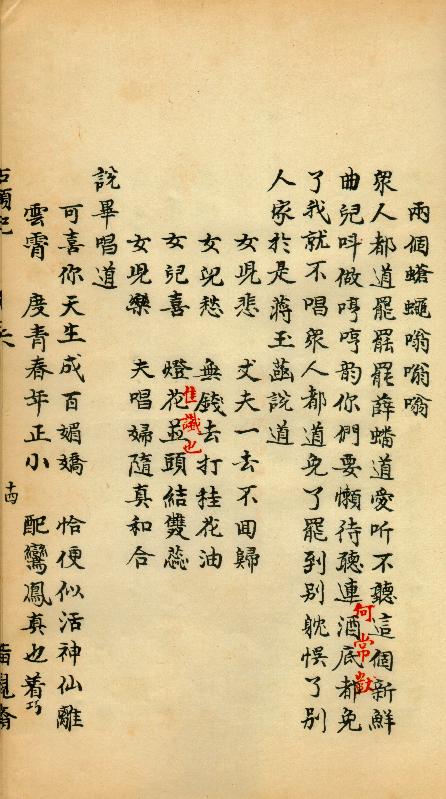 兩個螥蠅嗡嗡嗡
衆人都道罷罷罷薛蟠道愛听不聽這個新鮮
何常獃
曲兒呌做哼哼韵你們要懶待聽連酒底都免
了我就不唱衆人都道免了罷到别躭悞了别
人家於是蔣玉菡說道
女児悲 丈夫一去不回歸
女兒愁 無錢去打桂花油
佳讖也
女兒喜 燈花並頭結雙蕊
女児樂 夫唱婦隨真和合
說畢唱道
可喜你天生成百媚嬌 恰便似活神仙離
雲霄 度青春年正小 配鸞鳳真也着巧
十四